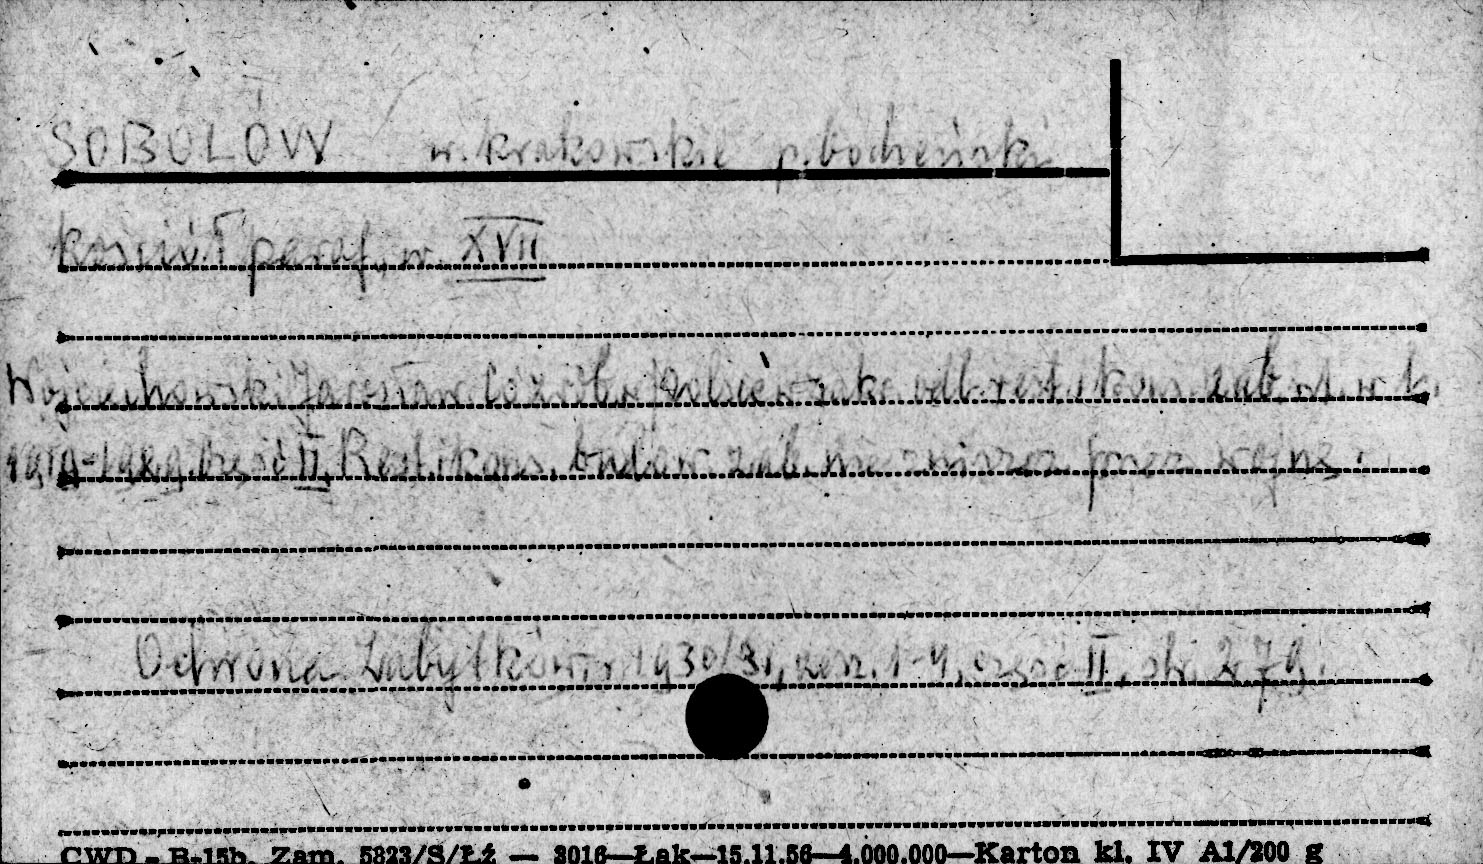 SOBOLÓW w. krakowskie p. bocheński
kościół paraf. w. XVII
Wojciechowski Jarosław odb. rest. i kons. zab. w
1919-1929 część II. Rest. i kons. budow. zab. nie zniszcz. przez wojnę.
Ochrona Zabytków 1930/31, zesz. 1-4, część II, str. 279.
CWD - B-15b. Zam. 5823/S/Łź — 3016—Łąk—15.11.56—4.000.000—Karton kl. IV A1/200 g